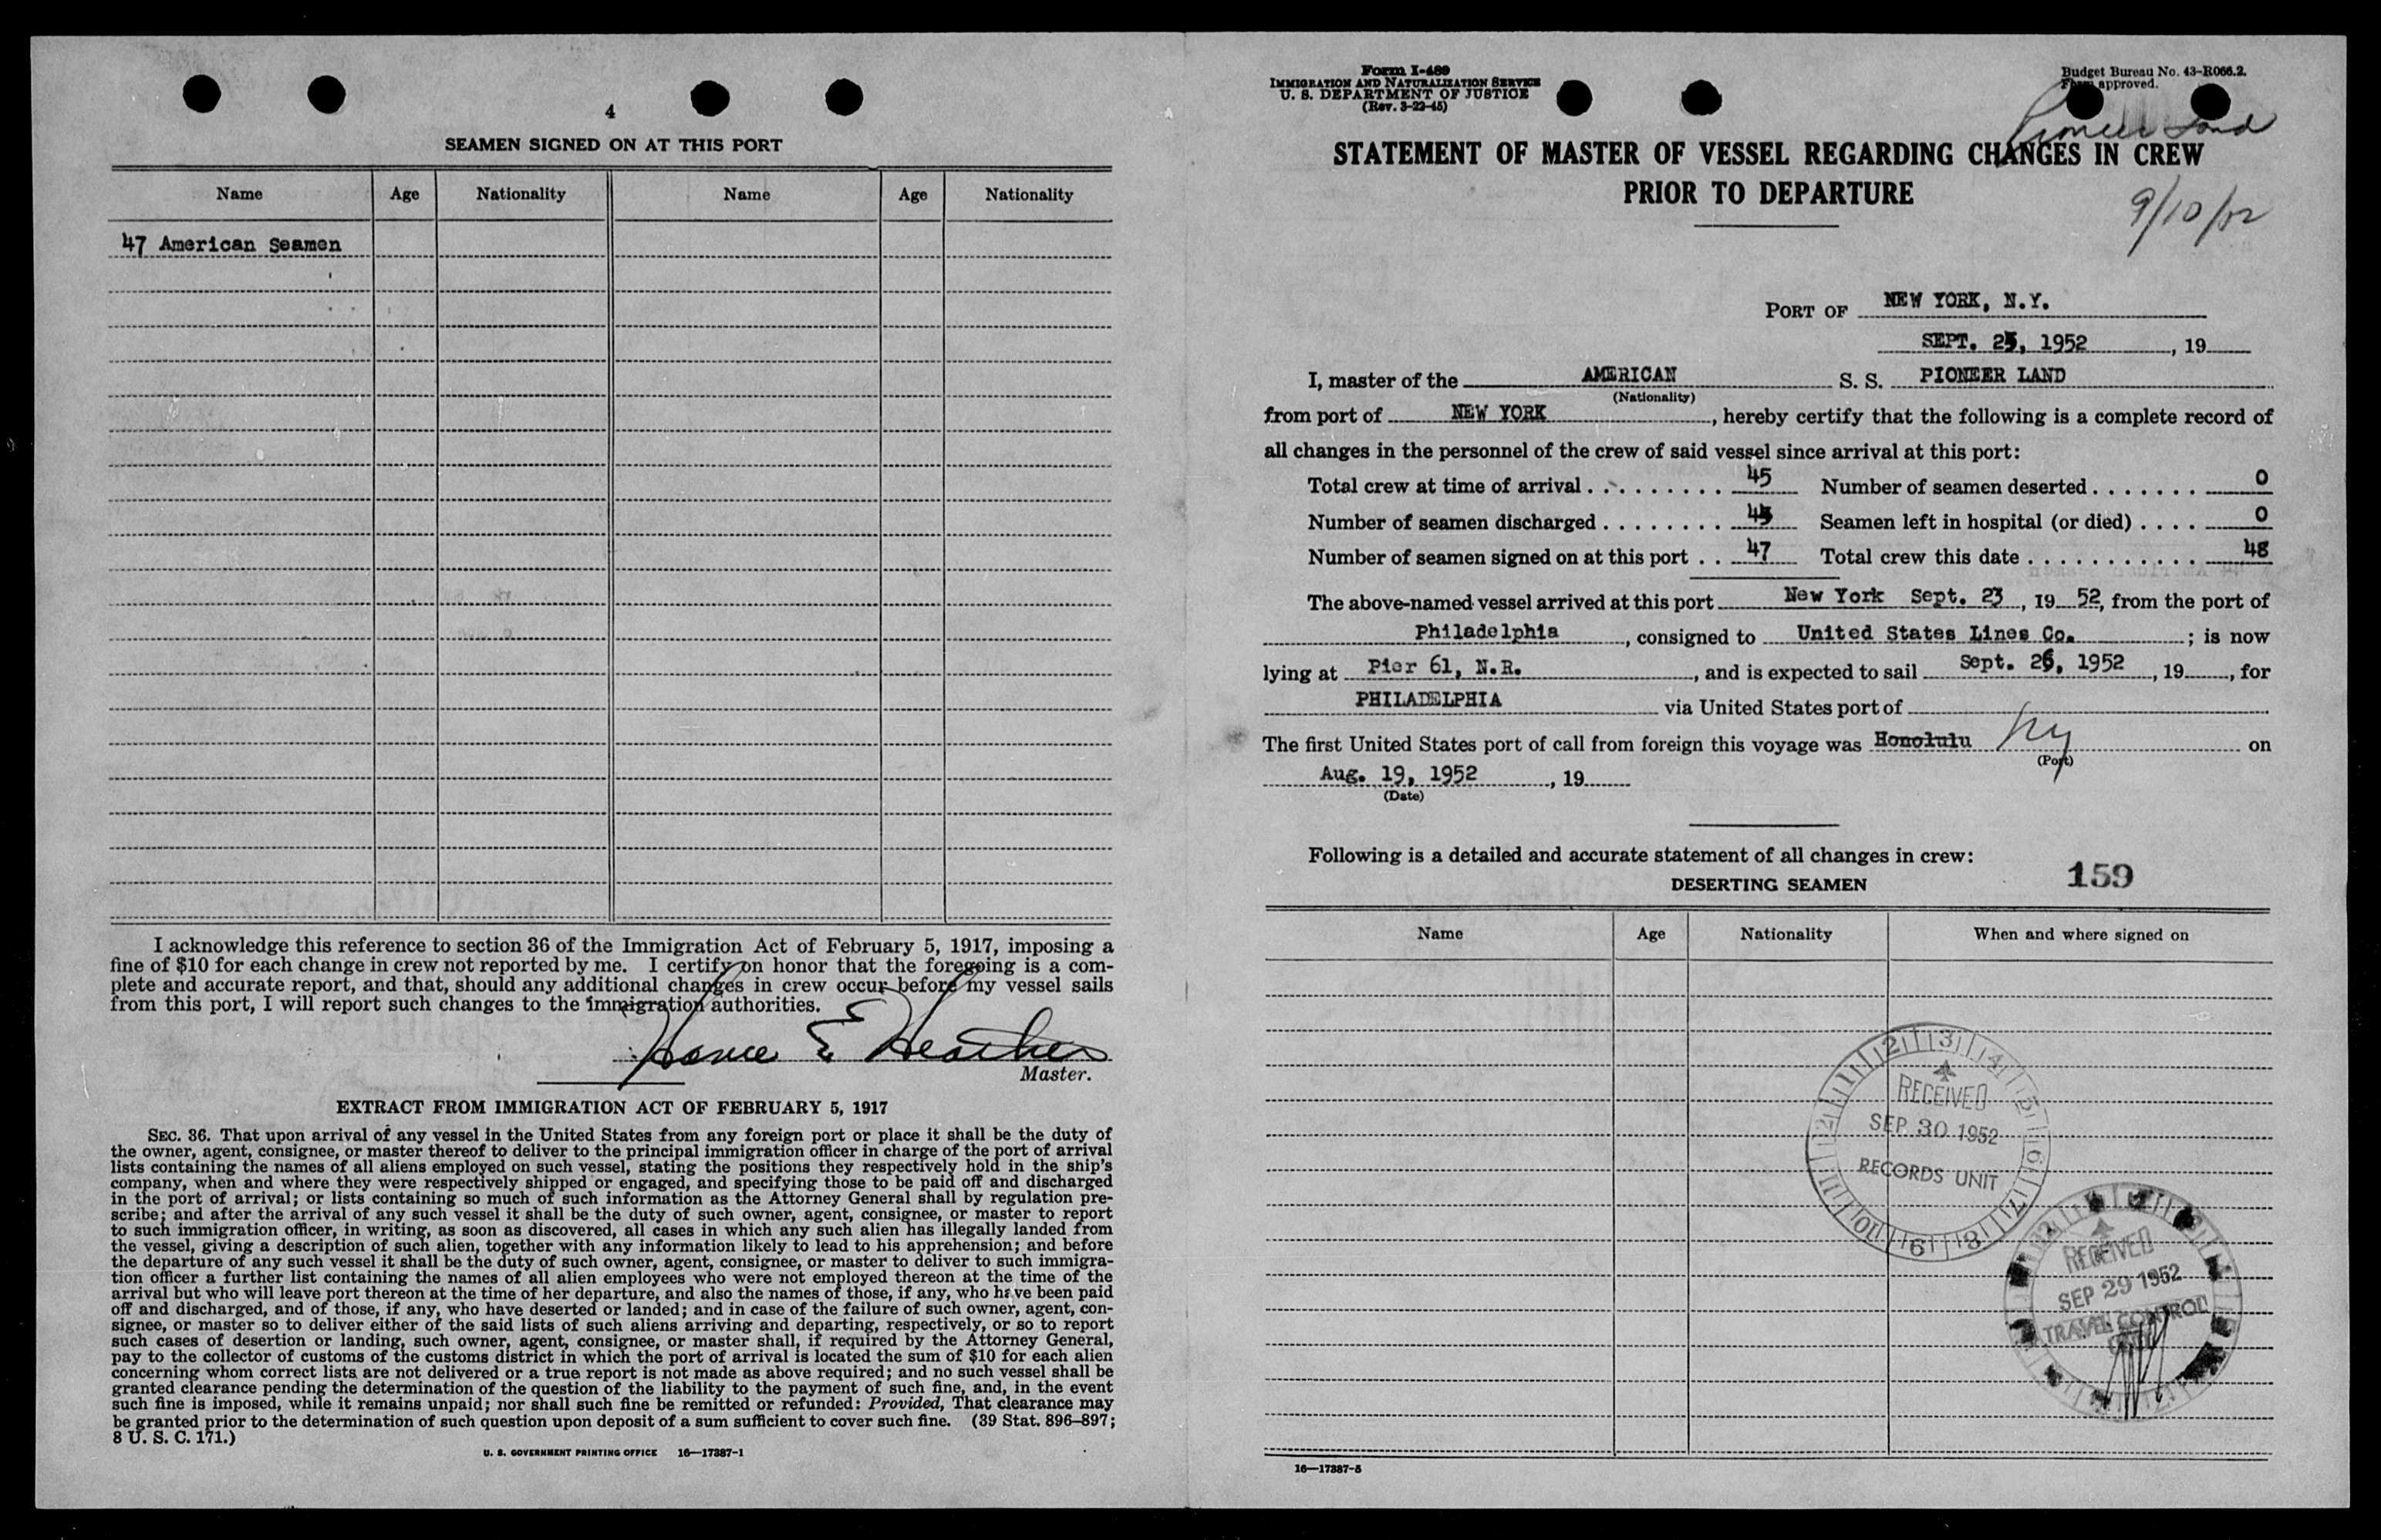 4
SEAMEN SIGNED ON AT THIS PORT
Name Age Nationality Name Age Nationality
47 American Seamen
I acknowledge this reference to section 36 of the Immigration Act of February 5, 1917, imposing a
fine of $10 for each change in crew not reported by me. I certify on honor that the foregoing is a com-
plete and accurate report, and that, should any additional changes in crew occur before my vessel sails
from this port, I will report such changes to the immigration authorities.
E
Master.
EXTRACT FROM IMMIGRATION ACT OF FEBRUARY 5, 1917
SEC. 36. That upon arrival of any vessel in the United States from any foreign port or place it shall be the duty of
the owner, agent, consignee, or master thereof to deliver to the principal immigration officer in charge of the port of arrival
lists containing the names of all aliens employed on such vessel, stating the positions they respectively hold in the ship's
company, when and where they were respectively shipped or engaged, and specifying those to be paid off and discharged
in the port of arrival; or lists containing so much of such information as the Attorney General shall by regulation pre-
scribe; and after the arrival of any such vessel it shall be the duty of such owner, agent, consignee, or master to report
to such immigration officer, in writing, as soon as discovered, all cases in which any such alien has illegally landed from
the vessel, giving a description of such alien, together with any information likely to lead to his apprehension; and before
the departure of any such vessel it shall be the duty of such owner, agent, consignee, or master to deliver to such immigra-
tion officer a further list containing the names of all alien employees who were not employed thereon at the time of the
arrival but who will leave port thereon at the time of her departure, and also the names of those, if any, who have been paid
off and discharged, and of those, if any, who have deserted or landed; and in case of the failure of such owner, agent, con-
signee, or master so to deliver either of the said lists of such aliens arriving and departing, respectively, or so to report
such cases of desertion or landing, such owner, agent, consignee, or master shall, if required by the Attorney General,
pay to the collector of customs of the customs district in which the port of arrival is located the sum of $10 for each alien
concerning whom correct lists are not delivered or a true report is not made as above required; and no such vessel shall be
granted clearance pending the determination of the question of the liability to the payment of such fine, and, in the event
such fine is imposed, while it remains unpaid; nor shall such fine be remitted or refunded: Provided, That clearance may
be granted prior to the determination of such question upon deposit of a sum sufficient to cover such fine. (39 Stat. 896–897;
8 U. S. C. 171.)
U. S. GOVERNMENT PRINTING OFFICE 16—17387-1
Form I-489
IMMIGRATION AND NATURALIZATION SERVICE
U. S. DEPARTMENT OF JUSTICE
(Rev. 3-22-45)
Budget Bureau No. 43-R066.2.
Form approved.
Pioneer Land
STATEMENT OF MASTER OF VESSEL REGARDING CHANGES IN CREW
PRIOR TO DEPARTURE
9/10/52
PORT OF NEW YORK, N.Y.
SEPT. 25, 1952, 19
I, master of the AMERICAN S. S. PIONEER LAND
(Nationality)
from port of NEW YORK, hereby certify that the following is a complete record of
all changes in the personnel of the crew of said vessel since arrival at this port:
Total crew at time of arrival 45 Number of seamen deserted 0
Number of seamen discharged Seamen left in hospital (or died) 0
Number of seamen signed on at this port 47 Total crew this date 48
The above-named vessel arrived at this port New York Sept. 23, 19 52, from the port of
Philadelphia, consigned to United States Lines Co.; is now
lying at Pier 61, N.R., and is expected to sail Sept. 26, 1952, 19, for
PHILADELPHIA via United States port of
The first United States port of call from foreign this voyage was Honolulu NY on
(Port)
Aug. 19, 1952, 19
(Date)
Following is a detailed and accurate statement of all changes in crew:
159
DESERTING SEAMEN
Name Age Nationality When and where signed on
RECEIVED
SEP 30 1952
RECORDS UNIT
RECEIVED
SEP 29 1952
TRAVEL CONTROL
UNIT
16—17387-5